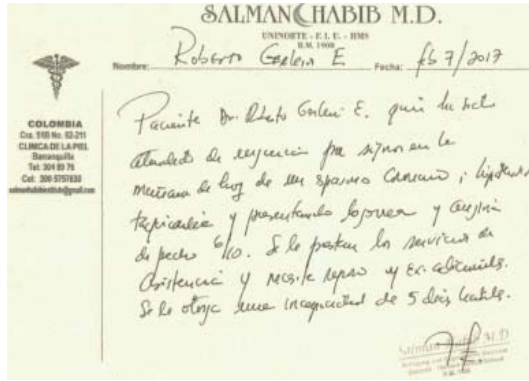 SALMAN HABIB M.D.
UNINORTE - F.I.U. - HMS
R.M. 1900
Nombre: Roberto Gerlein E Fecha: feb 7/2017
COLOMBIA
Cra. 51B No. 82-211
CLINICA DE LA PIEL
Barranquilla
Tel: 304 89 76
Cel: 300 5757830
salmanhabibinstitute@gmail.com
Paciente Dr. Roberto Gerlein E. quien ha sido
atendido de urgencia por signos en la
mañana de hoy de un espasmo coronario, hipotensión
taquicardia y presentando y angina
de pecho 6/10. Se le prestan los servicios de
asistencia y necesita reposo y
Se le otorga una incapacidad de 5 dias
Salman Habib M.D